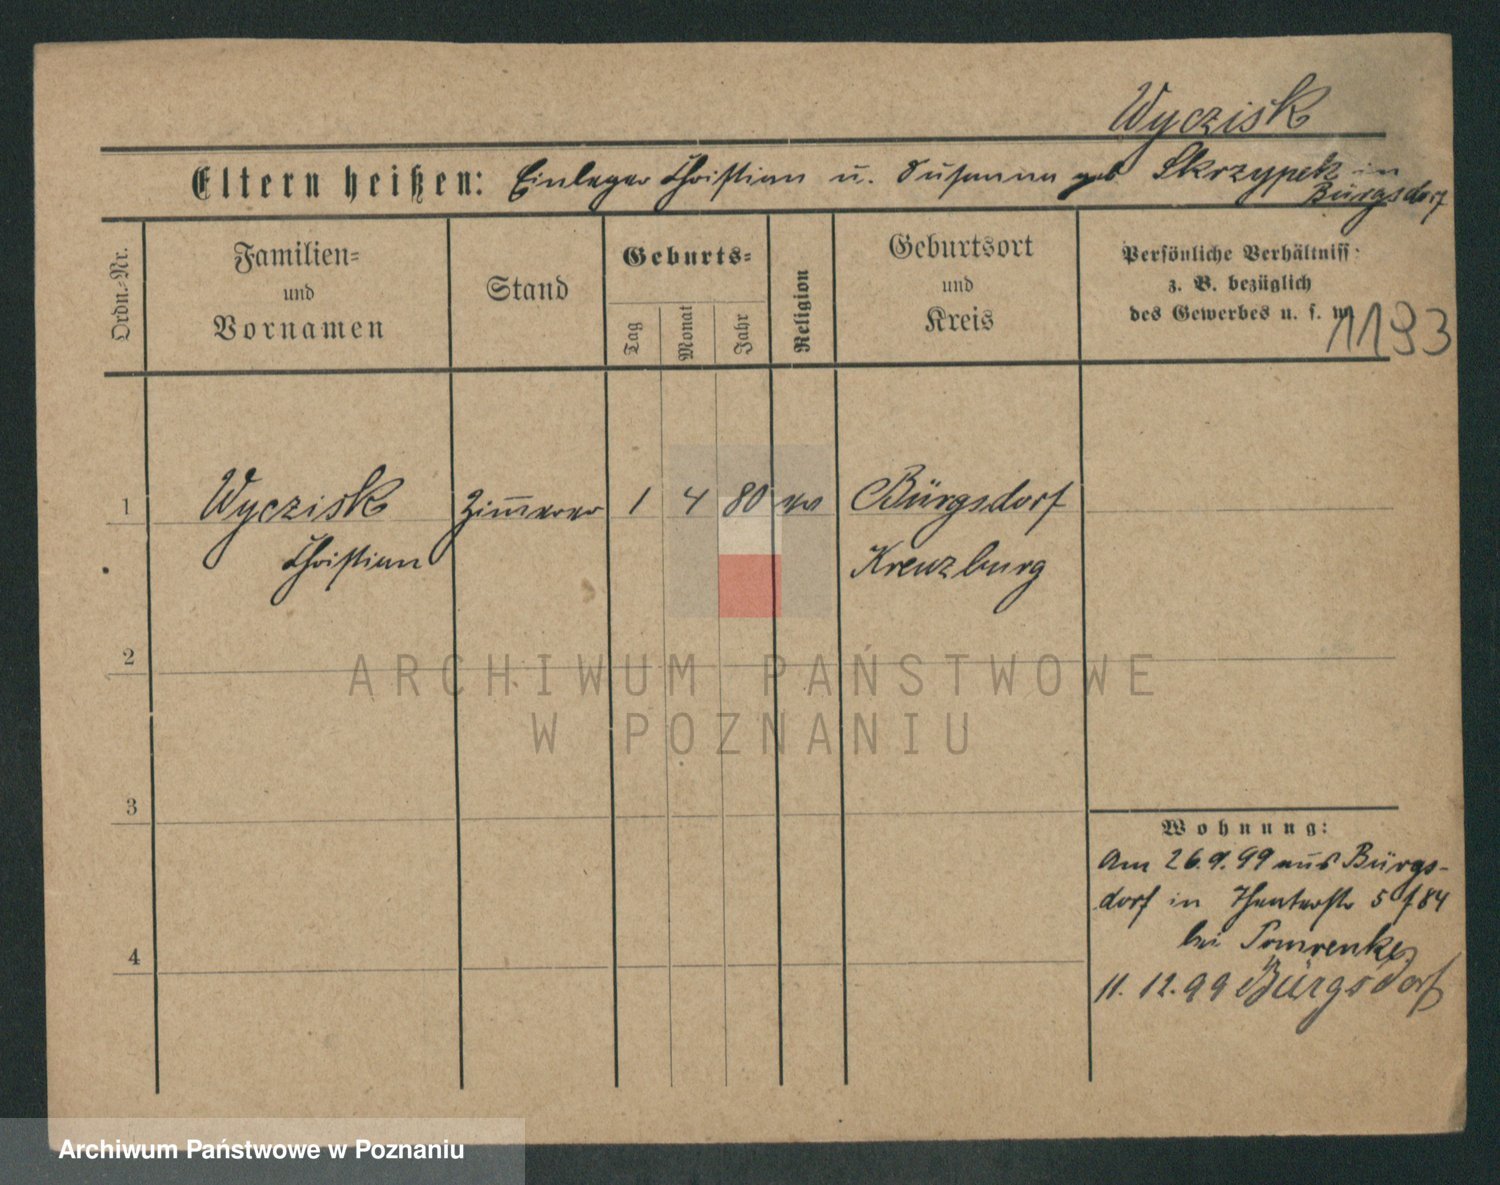 Wyczisk
Eltern heißen: Einleger Christian u. Susanna geb Skrzypek in
Bürgsdorf
Ordn.-Nr.
Familien-
und
Vornamen
Stand
Geburts-
Tag
Monat
Jahr
Religion
Geburtsort
und
Kreis
Persönliche Verhältniss
z. B. bezüglich
des Gewerbes u. s. w.
1193
1 Wyczisk Zimmerer 1 4 80 ev Bürgsdorf
Christian Kreuzburg
2
3
4
Wohnung:
Am 26.9.99 aus Bürgs-
dorf in Theaterstr 5 f 84
bei
11.12.99 Bürgsdorf
ARCHIWUM PAŃSTWOWE
W POZNANIU
Archiwum Państwowe w Poznaniu